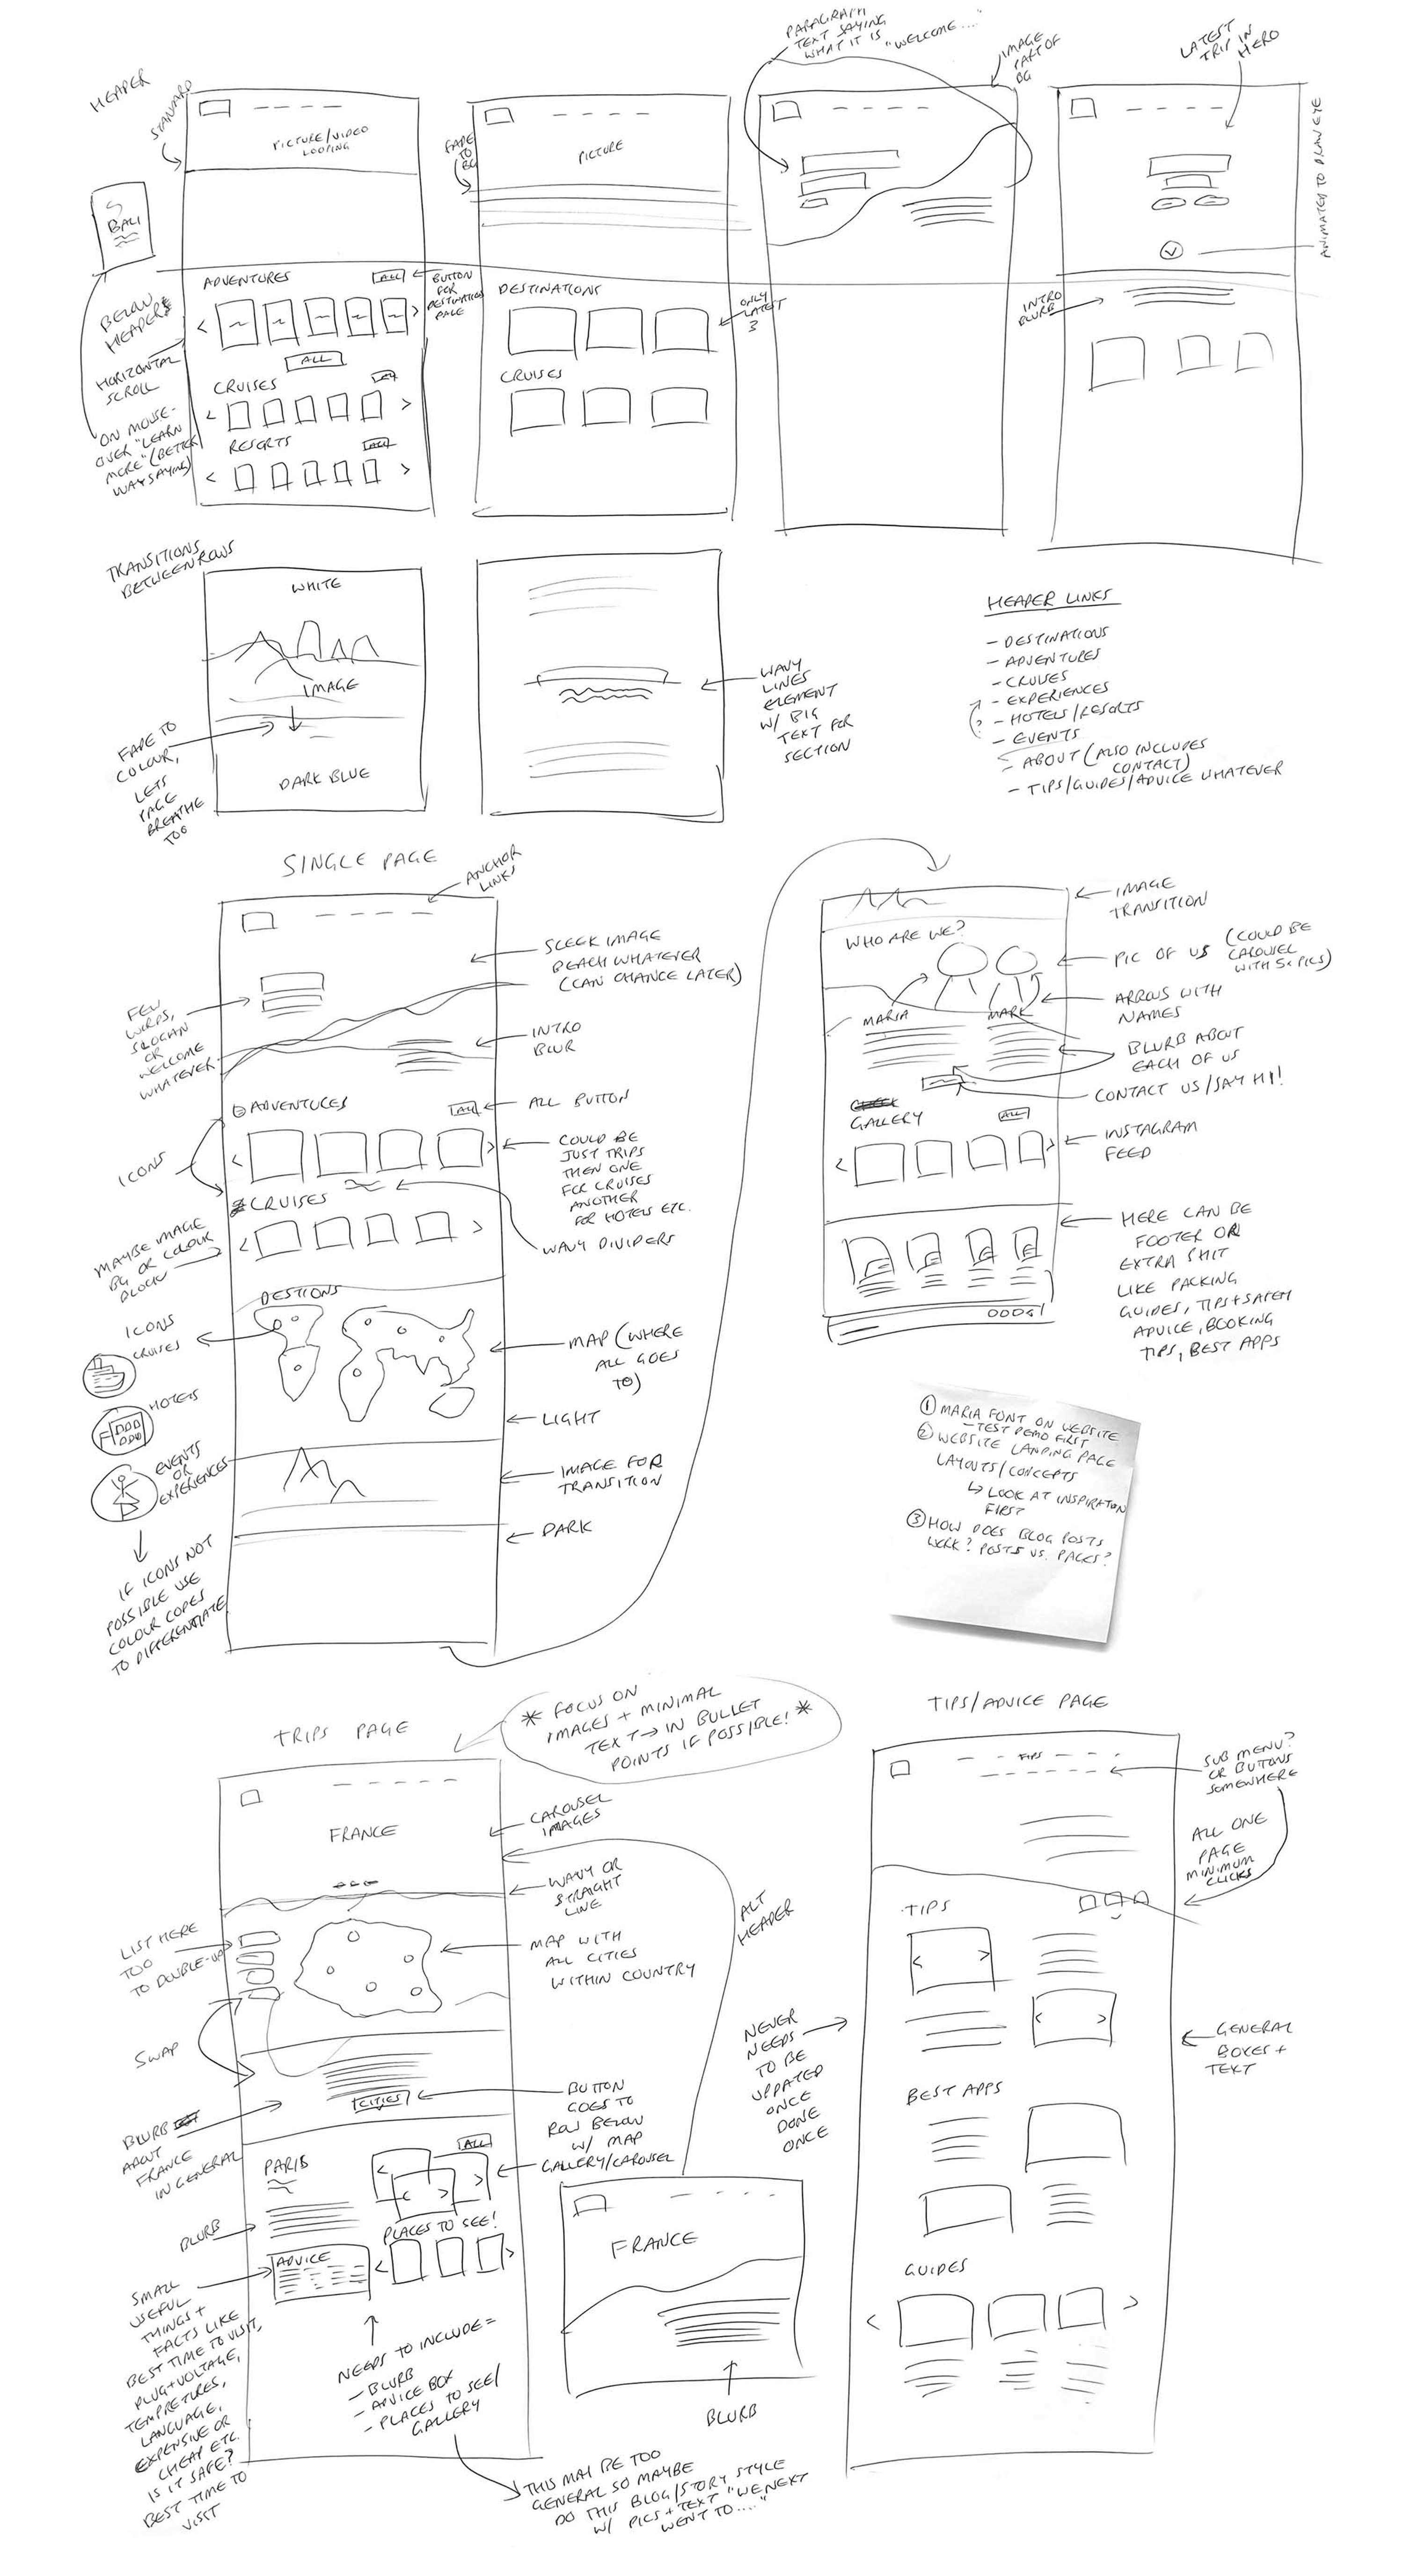 HEADER
STANDARD
PICTURE/VIDEO
LOOPING
BALI
BELOW
HEADERS
HORIZONTAL
SCROLL
ON MOUSE-
OVER "LEARN
MORE" (BETTER
WAY SAYING)
ADVENTURES
ALL
BUTTON
FOR
DESTINATION
PAGE
ALL
CRUISES
ALL
RESORTS
ALL
FADE
TO
BG
PICTURE
DESTINATIONS
ONLY
LATEST
3
CRUISES
PARAGRAPH
TEXT SAYING
WHAT IT IS "WELCOME...."
IMAGE
PART OF
BG
LATEST
TRIP IN
HERO
ANIMATED TO DRAW EYE
INTRO
BLURB
TRANSITIONS
BETWEEN ROWS
WHITE
IMAGE
DARK BLUE
FADE TO
COLOUR,
LETS
PAGE
BREATHE
TOO
WAVY
LINES
ELEMENT
W/ BIG
TEXT FOR
SECTION
HEADER LINKS
- DESTINATIONS
- ADVENTURES
- CRUISES
- EXPERIENCES
?
- HOTELS/RESORTS
- EVENTS
- ABOUT (ALSO INCLUDES
CONTACT)
- TIPS/GUIDES/ADVICE WHATEVER
SINGLE PAGE
ANCHOR
LINKS
SLEEK IMAGE
BEACH WHATEVER
(CAN CHANGE LATER)
FEW
WORDS,
SLOGAN
OR
WELCOME
WHATEVER
INTRO
BLUR
ADVENTURES
ALL
ALL BUTTON
ICONS
COULD BE
JUST TRIPS
THEN ONE
FOR CRUISES
ANOTHER
FOR HOTELS ETC.
CRUISES
WAVY DIVIDERS
MAYBE IMAGE
BG OR COLOUR
BLOCK
DESTIONS
ICONS
CRUISES
HOTELS
EVENTS
OR
EXPERIENCES
MAP (WHERE
ALL GOES
TO)
LIGHT
IMAGE FOR
TRANSITION
DARK
IF ICONS NOT
POSSIBLE USE
COLOUR CODES
TO DIFFERENTIATE
IMAGE
TRANSITION
WHO ARE WE?
PIC OF US (COULD BE
CAROUSEL
WITH 5x PICS)
ARROWS WITH
NAMES
MARIA
MARK
BLURB ABOUT
EACH OF US
CONTACT US/SAY HI!
GALLERY
ALL
INSTAGRAM
FEED
HERE CAN BE
FOOTER OR
EXTRA SHIT
LIKE PACKING
GUIDES, TIPS+SAFETY
ADVICE, BOOKING
TIPS, BEST APPS
① MARIA FONT ON WEBSITE
- TEST DEMO FIRST
② WEBSITE LANDING PAGE
LAYOUTS/CONCEPTS
↳ LOOK AT INSPIRATION
FIRST
③ HOW DOES BLOG POSTS
WORK? POSTS VS. PAGES?
TRIPS PAGE
* FOCUS ON
IMAGES + MINIMAL
TEXT → IN BULLET
POINTS IF POSSIBLE! *
FRANCE
CAROUSEL
IMAGES
WAVY OR
STRAIGHT
LINE
LIST HERE
TOO
TO DOUBLE-UP
MAP WITH
ALL CITIES
WITHIN COUNTRY
ALT
HEADER
SWAP
CITIES
BUTTON
GOES TO
ROW BELOW
W/ MAP
BLURB
ABOUT
FRANCE
IN GENERAL
PARIS
ALL
GALLERY/CAROUSEL
BLURB
PLACES TO SEE!
ADVICE
SMALL
USEFUL
THINGS +
FACTS LIKE
BEST TIME TO VISIT,
PLUG+VOLTAGE,
TEMPRETURES,
LANGUAGE,
EXPENSIVE OR
CHEAP ETC.
IS IT SAFE?
BEST TIME TO
VISIT
NEEDS TO INCLUDE =
- BLURB
- ADVICE BOX
- PLACES TO SEE/
GALLERY
THIS MAY BE TOO
GENERAL SO MAYBE
DO THIS BLOG/STORY STYLE
W/ PICS + TEXT "WE NEXT
WENT TO...."
FRANCE
BLURB
TIPS/ADVICE PAGE
TIPS
SUB MENU?
OR BUTTONS
SOMEWHERE
ALL ONE
PAGE
MINIMUM
CLICKS
TIPS
NEVER
NEEDS
TO BE
UPDATED
ONCE
DONE
ONCE
GENERAL
BOXES +
TEXT
BEST APPS
GUIDES